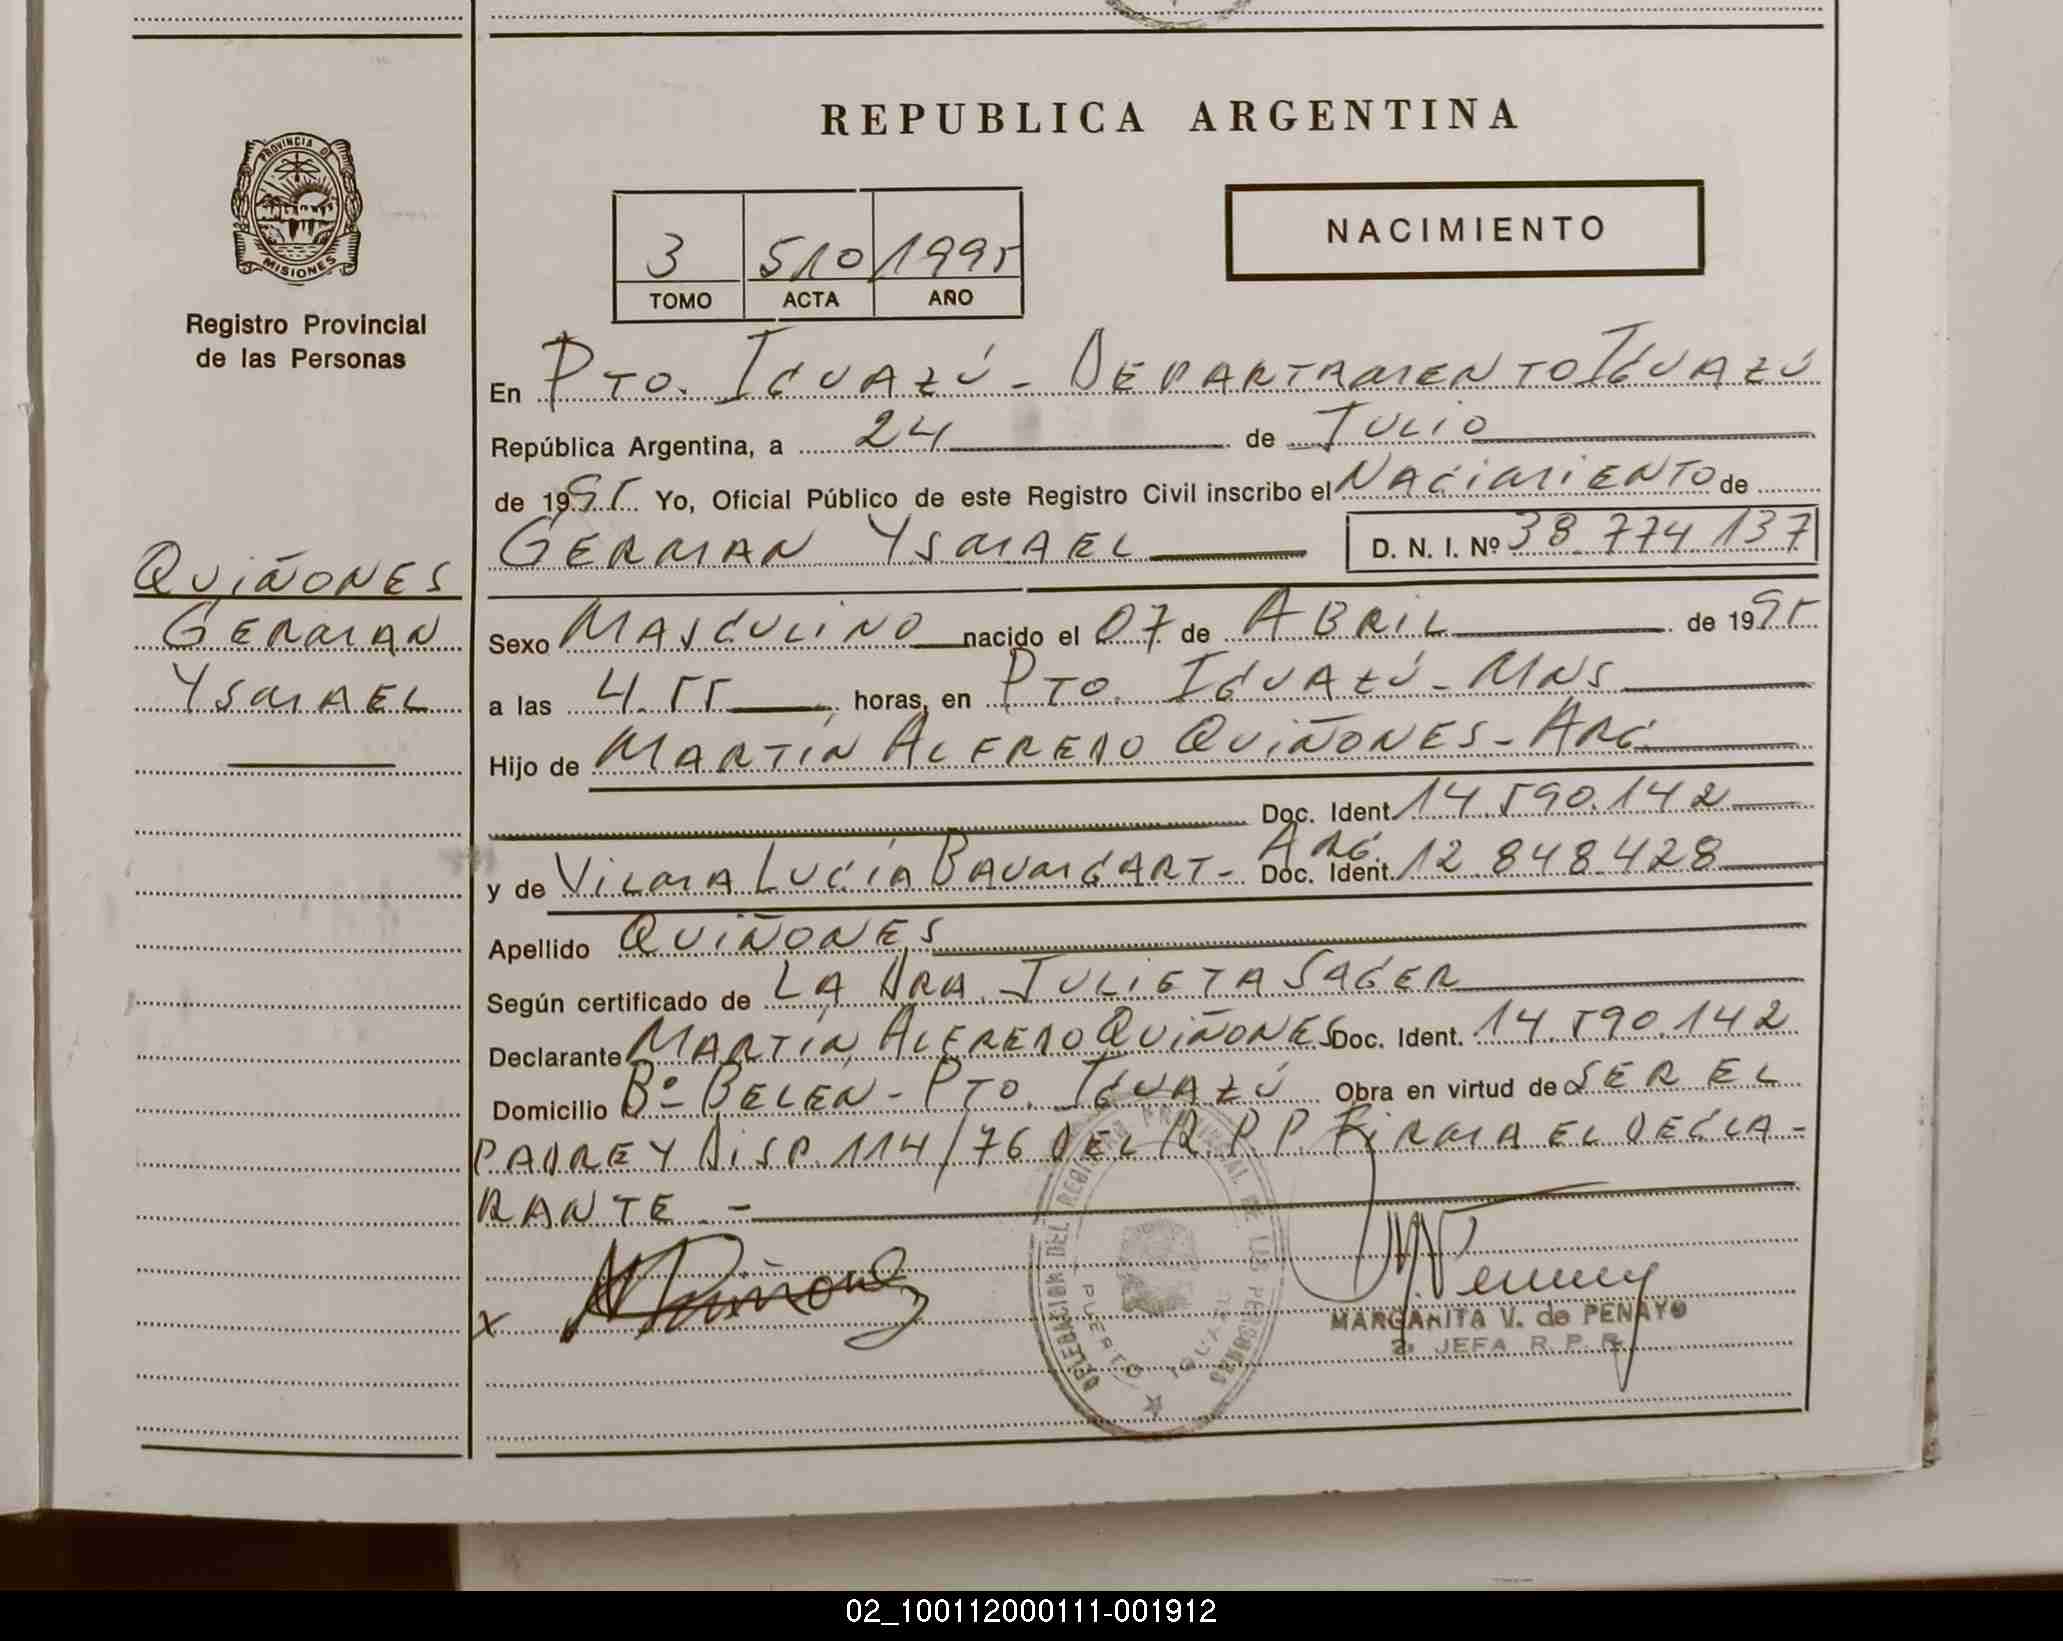 REPUBLICA ARGENTINA
PROVINCIA DE
MISIONES
Registro Provincial
de las Personas
3 510 1995
TOMO ACTA AÑO
NACIMIENTO
En PTO. IGUAZÚ - DEPARTAMENTO IGUAZÚ
República Argentina, a 24 de JULIO
de 1995 Yo, Oficial Público de este Registro Civil inscribo el NACIMIENTO de
GERMAN YSMAEL D. N. I. Nº 38.774.137
QUIÑONES
GERMAN
YSMAEL
Sexo MASCULINO nacido el 07 de ABRIL de 1995
a las 4.55 horas, en PTO. IGUAZÚ - MNS
Hijo de MARTÍN ALFREDO QUIÑONES - ARG.
Doc. Ident. 14.590.142
y de VILMA LUCÍA BAUMGART - ARG. Doc. Ident. 12.848.428
Apellido QUIÑONES
Según certificado de LA DRA. JULIETA SAGER
Declarante MARTÍN ALFREDO QUIÑONES Doc. Ident. 14.590.142
Domicilio Bº BELÉN - PTO. IGUAZÚ Obra en virtud de SER EL
PADRE Y DISP. 114/76 DEL R.P.P. FIRMA EL DECLA-
RANTE.-
x
DELEGACION DEL REGISTRO PROVINCIAL DE LAS PERSONAS
PUERTO IGUAZU
MARGARITA V. de PENAYO
2º JEFA R. P. P.
02_100112000111-001912